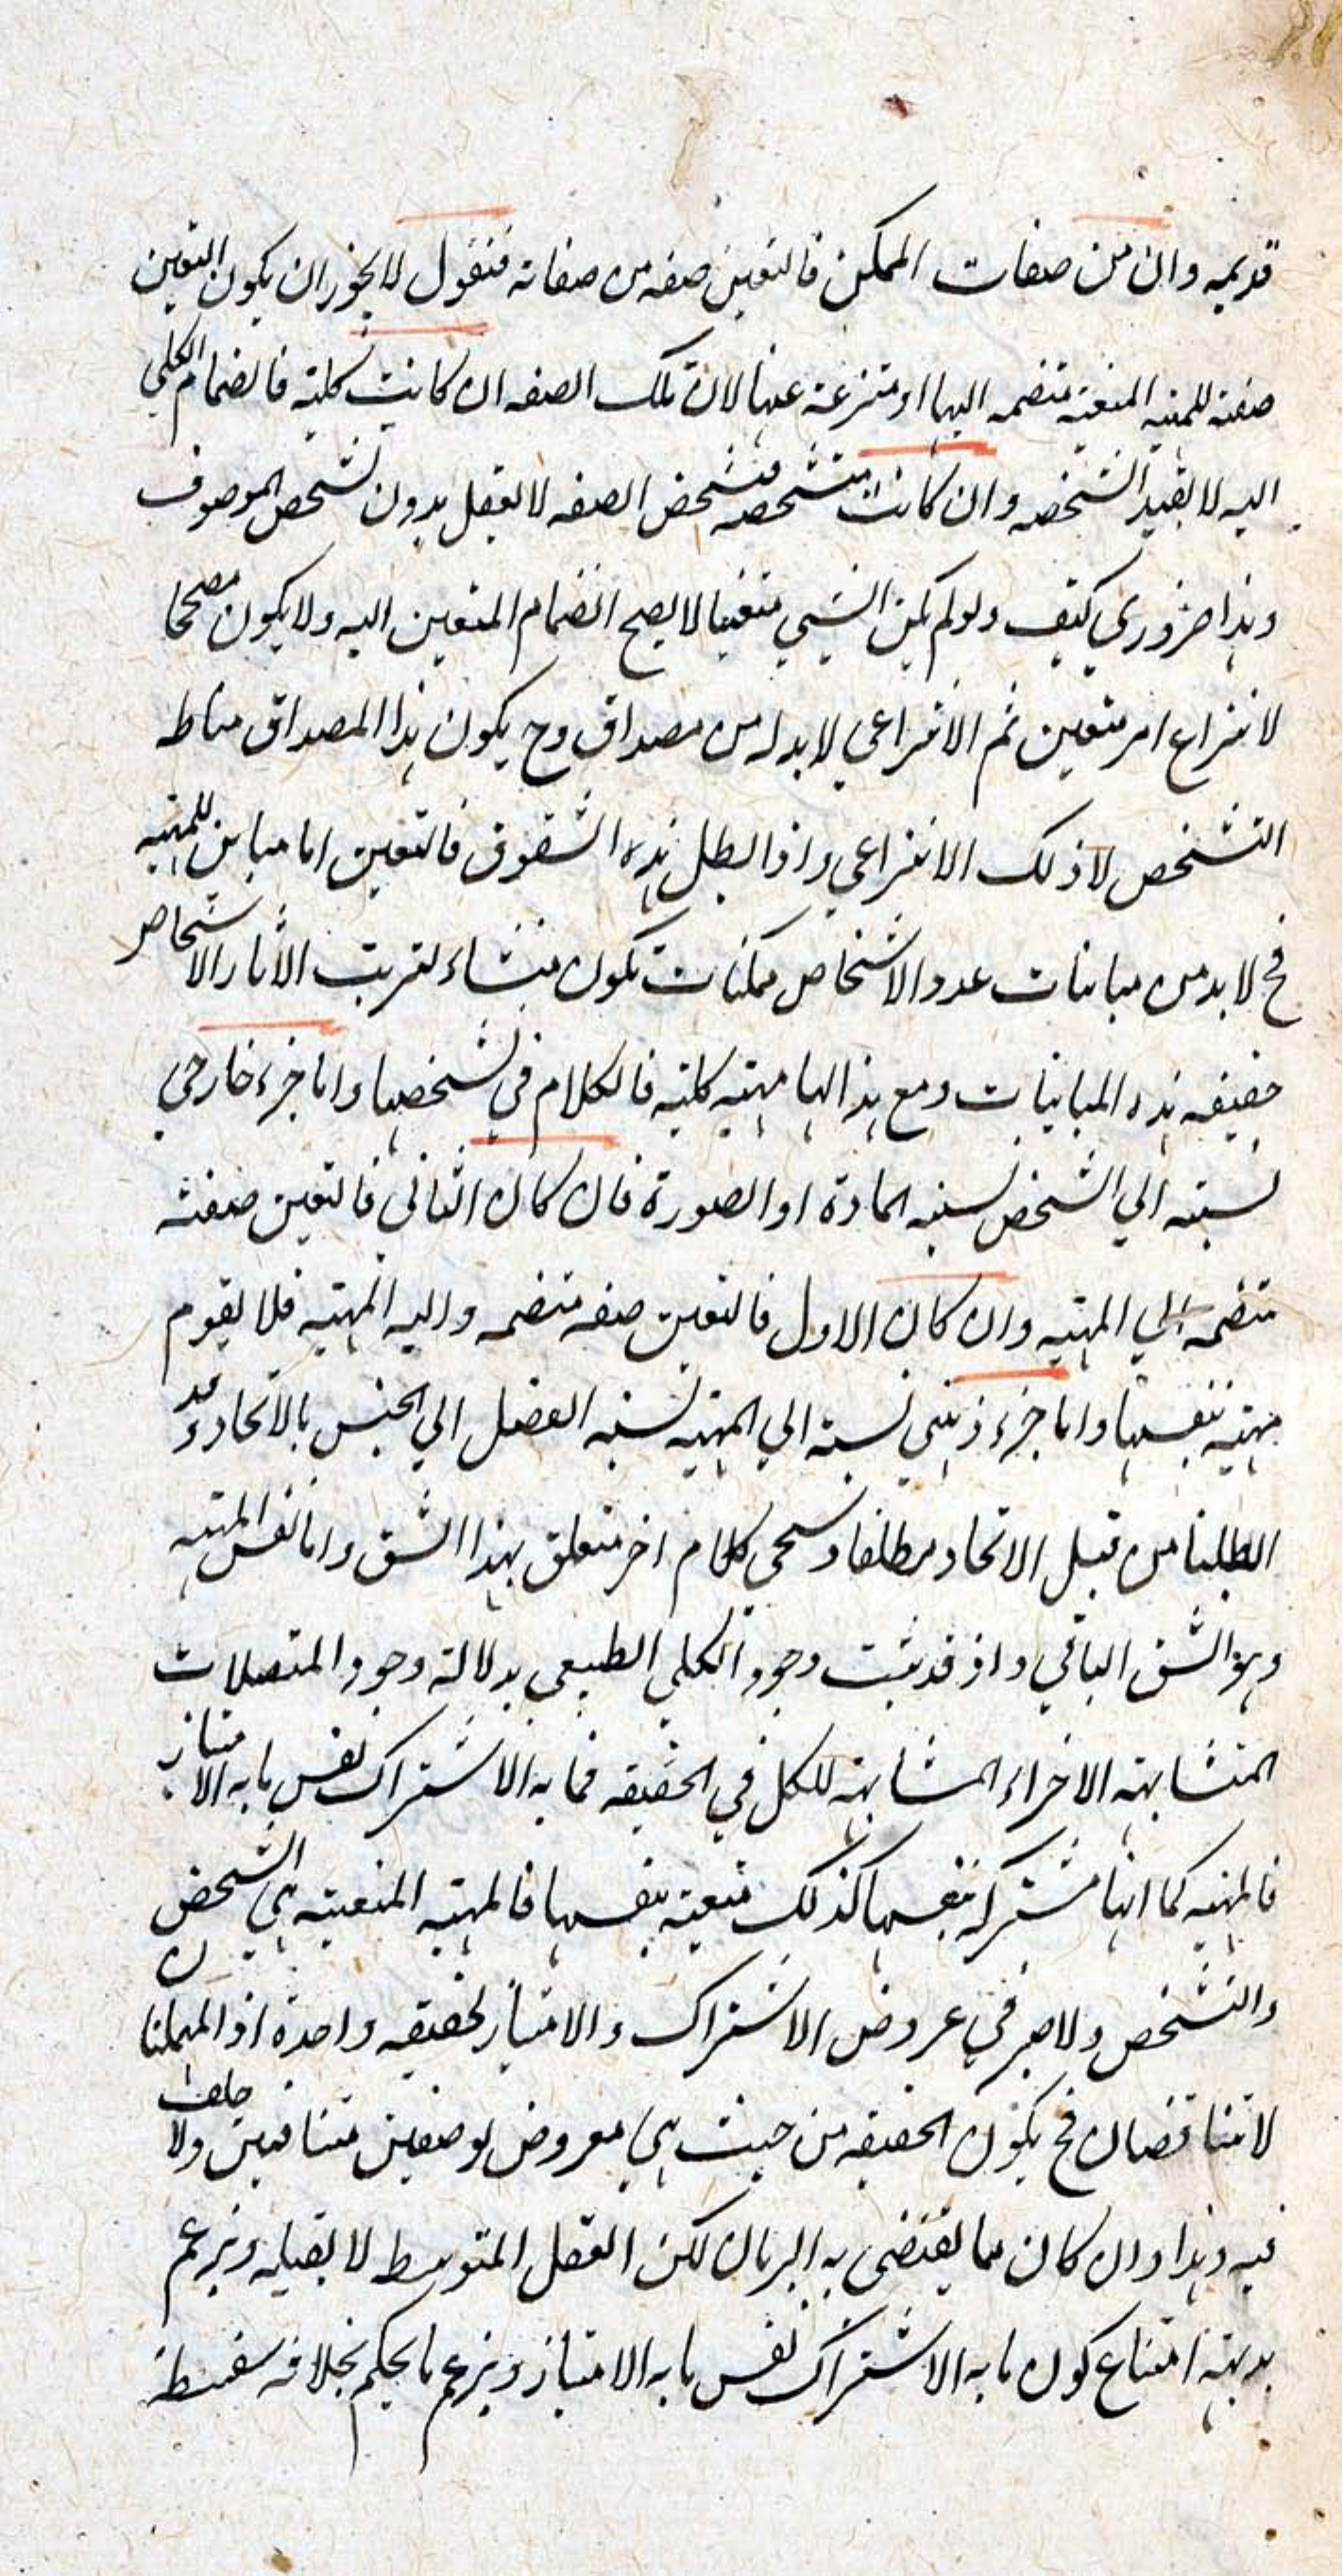 قديمه وان من صفات الممكن فالتعين صفه من صفاته فنقول لا يجوز ان يكون التعين
صفته للمهية المتعينه منضمه اليها او منتزعة عنها لان تلك الصفه ان كانت كلية فانضمام الكلي
اليه لا يفيد التشخص وان كانت متشخصه فتشخص الصفه لا يعقل بدون تشخص الموصوف
وهذا ضروري كيف ولو لم يكن الشيي متعينا لا يصح انضمام المتعين اليه ولا يكون مصححا
لانتزاع امر متعين ثم الانتزاعي لا بد له من مصداق وح يكون هذا المصداق مناط
التشخص لا ذلك الانتزاعي واذا بطل هذه الشقوق فالتعين اما مباين للمهية
فح لا بد من مباينات عدد الاشخاص ممكنات تكون منشاء لترتب الاثار الاشخاص
حقيقه هذه المباينات ومع هذا لها مهيته كلية فالكلام في تشخصها واما جزء خارجي
نسبته الي الشخص نسبه المادة او الصورة فان كان الثاني فالتعين صفته
منضمه الي المهية وان كان الاول فالتعين صفه منضمه واليه المهية فلا يقوم
مهية بنفسها واما جزء ذهني نسبته الي المهية نسبه الفصل الي الجنس بالاتحاد وقد
ابطلنا من قبل الاتحاد مطلقا وسيجي كلام اخر متعلق بهذا الشق واما نفس المهية
وهو الشق الباقي واذ قد ثبت وجود الكلي الطبيعي بدلالة وجود المتصلات
المتشابهة الاجزاء المشابهة للكل في الحقيقه فما به الاشتراك نفس ما به الامتياز
فالمهية كما انها مشتركه بنفسها كذلك متعينه بنفسها فالمهية المتعينه هي الشخص
والتشخص ولا صير في عروض الاشتراك والامتياز لحقيقه واحدة اذ المهملتان
لا تتناقضان فح يكون الحقيقه من حيث هي معروض لوصفين متنافيين ولا خلف
فيه وهذا وان كان مما يقتضى به البرهان لكن العقل المتوسط لا يقبله ويزعم
بديهة امتناع كون ما به الاشتراك نفس ما به الامتياز ويزعم ما يحكم بخلافه سفسطة